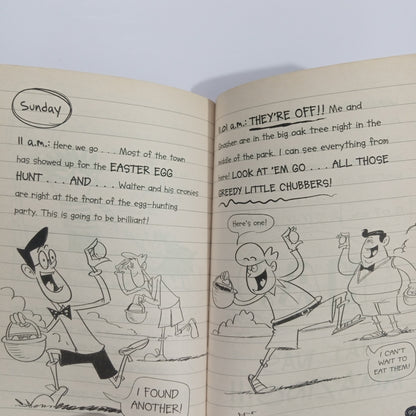 Sunday
11 a.m.: Here we go . . . Most of the town
has showed up for the EASTER EGG
HUNT . . . AND . . . Walter and his cronies
are right at the front of the egg-hunting
party. This is going to be brilliant!
I FOUND
ANOTHER!
11.01 a.m.: THEY'RE OFF!! Me and
Gnasher are in the big oak tree right in the
middle of the park. I can see everything from
here! LOOK AT 'EM GO . . . . ALL THOSE
GREEDY LITTLE CHUBBERS!
Here's one!
I CAN'T
WAIT TO
EAT THEM!